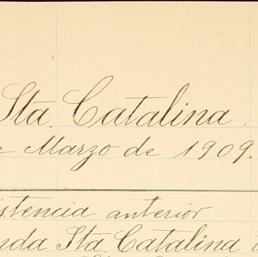 Sta. Catalina.
de Marzo de 1909.
istencia anterior
nda Sta Catalina